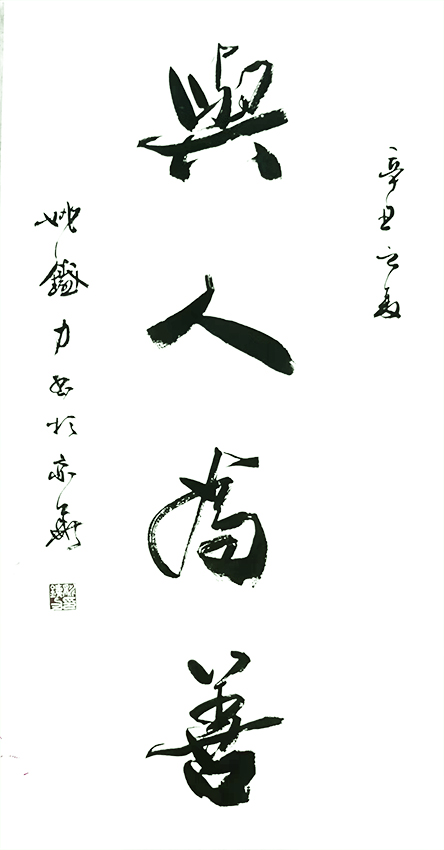 辛丑之夏
與人為善
姚鑑力書於京華